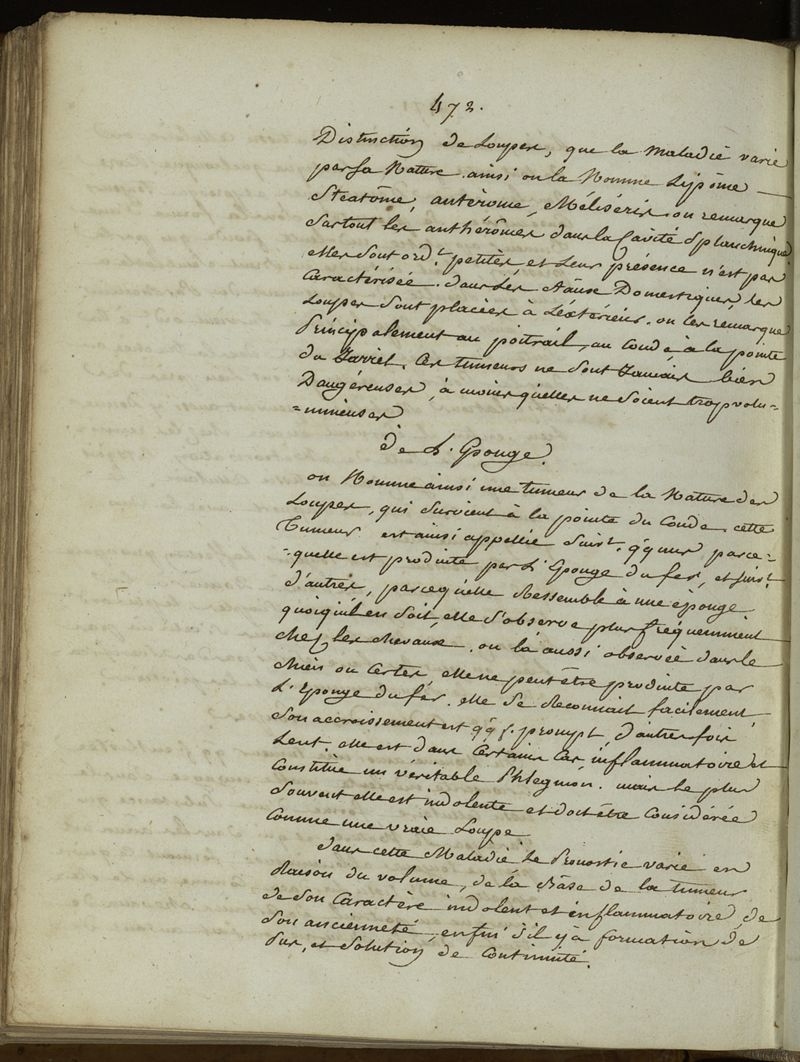 472.
Distinction de Loupes, que la Maladie varie
par sa Nature. ainsi on la Nomme Lipôme
Steatôme, antérome, Mélisèris. on remarque
Surtout les anthérômes dans la Cavité Splanchnique
elles sont ord.t petites, et Leur présence n'est pas
Caractérisée. dans Les Domestiques, les
Loupes sont placées à L'éxtérieur. on les remarque
Principalement au poitrail, au Coude, à la pointe
du Jarret. Ces tumeurs ne sont Jamais bien
Dangéreuses, à moins quelles ne soient trop volu=
=mineuses
de L'Eponge.
on Nomme ainsi une tumeur de la Nature des
Loupes, qui survient à la pointe du Coude. cette
Tumeur est ainsi appellée suiv.t q'q'uns parce=
=quelle est produite par L'Eponge du fer, et suiv.t
d'autres, parcequ'elle Ressemble à une éponge
quoiqu'il en soit, elle s'observe plus fréquemment
chez les chevaux. on là aussi observée dans le
chien ou Certes, elle ne peut être produite par
L'Eponge du fer. elle se Reconnait facilement,
Son accroissement est q'q f. prompt, d'autre fois
Lent. elle est dans Certains Cas, inflammatoire et
Constitue un véritable Phlegmon. mais le plus
Souvent elle est indolente et doit être Considérée
Comme une vraie Loupe
Dans cette Maladie le Pronostic varie en
Raison du volume, de la Base de la tumeur
de son Caractère indolent et inflammatoire, de
son ancienneté, enfin s'il y a formation de
Pus, et Solution de Continuité.